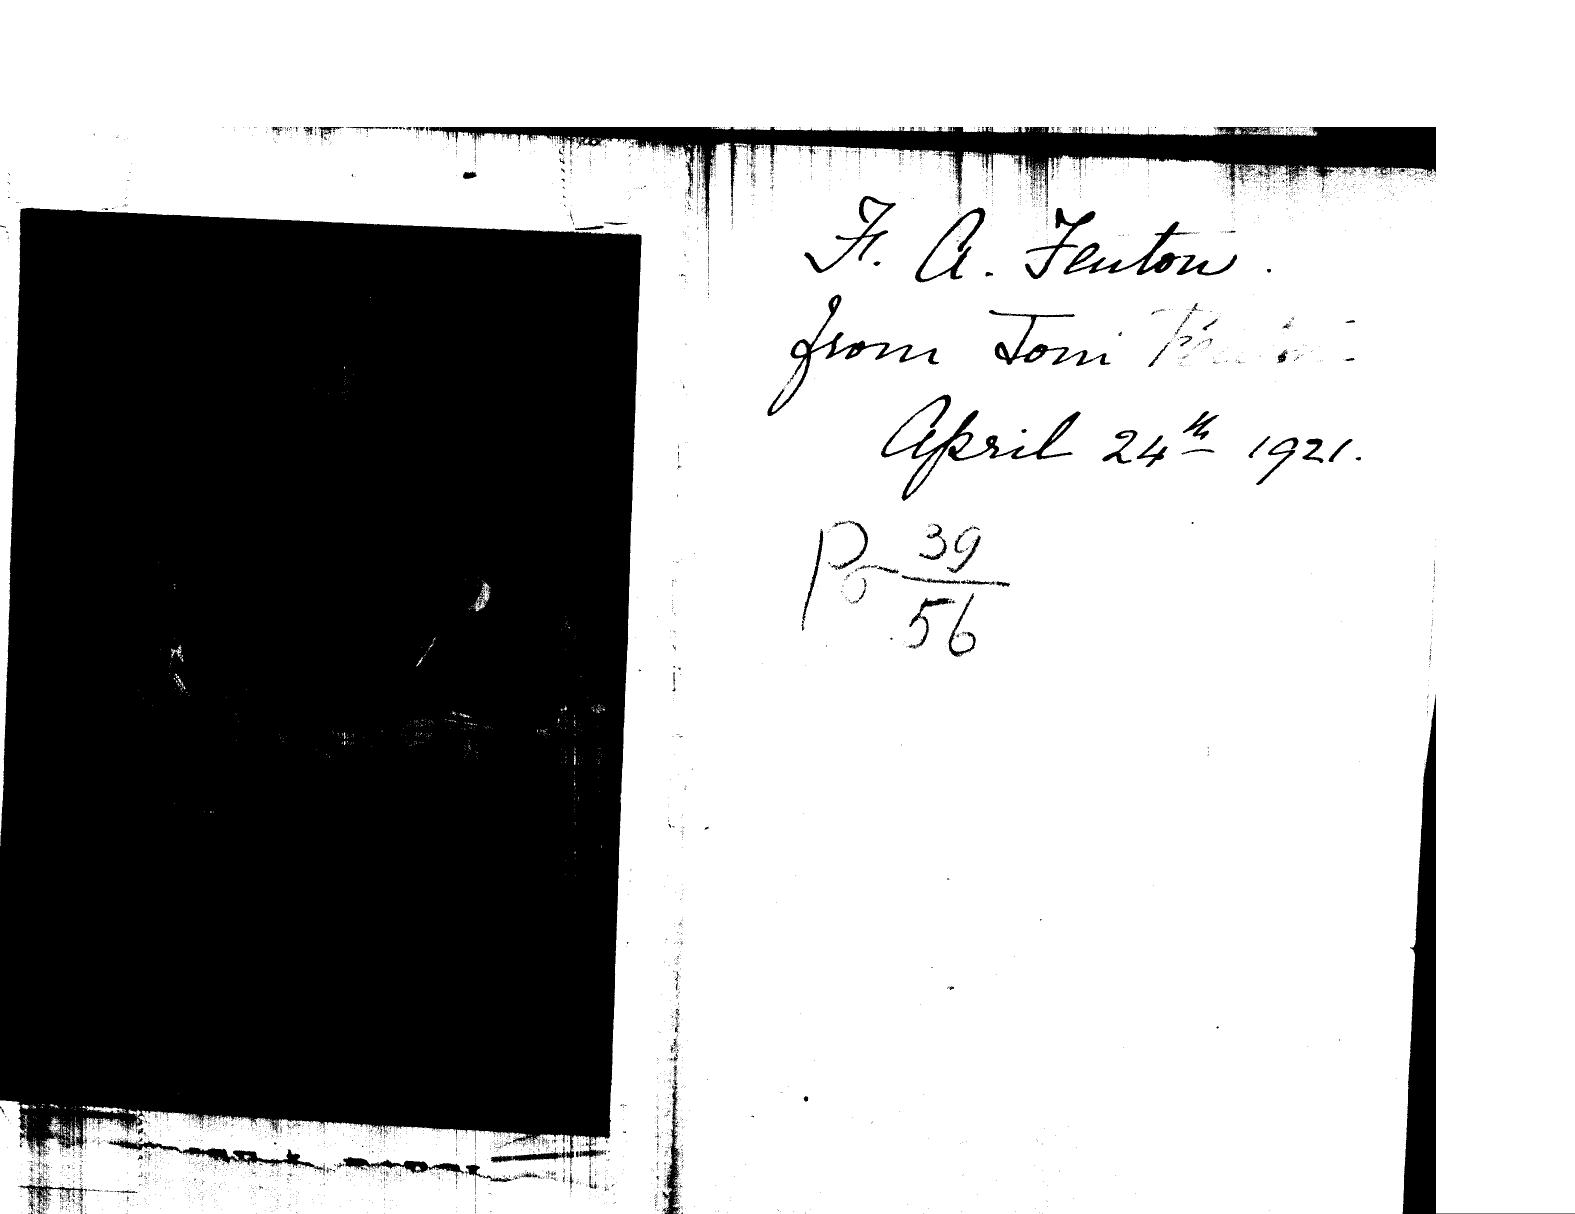 F. A. Fenton.
from Tom
April 24th 1921.
Po 39
56